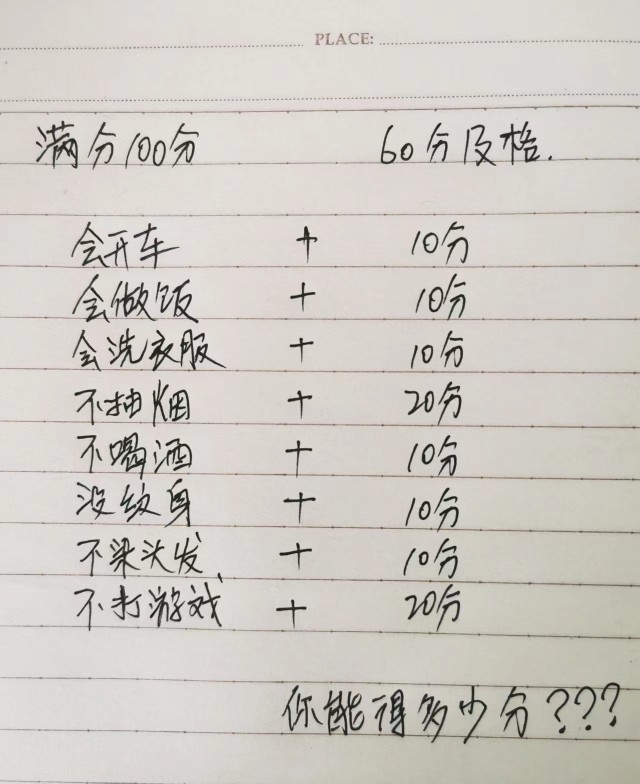 PLACE:
满分100分 60分及格.
会开车 + 10分
会做饭 + 10分
会洗衣服 + 10分
不抽烟 + 20分
不喝酒 + 10分
没纹身 + 10分
不染头发 + 10分
不打游戏 + 20分
你能得多少分???